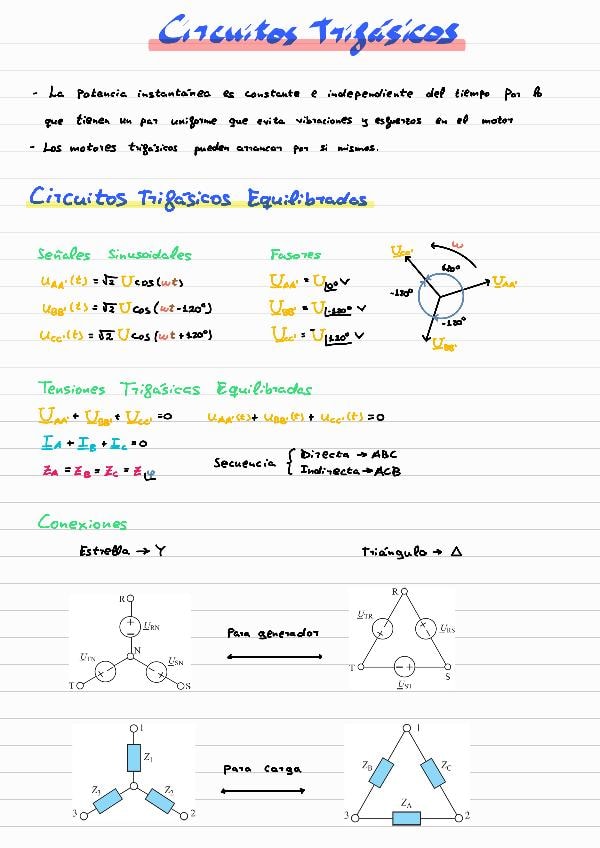 Circuitos Trifásicos
- La potencia instantánea es constante e independiente del tiempo por lo
que tienen un par uniforme que evita vibraciones y esfuerzos en el motor
- Los motores trifásicos pueden arrancar por si mismos.
Circuitos Trifásicos Equilibradas
Señales Sinusoidales Fasores
u_AA'(t) = √2 U cos(wt) U_AA' = U∠0° V
u_BB'(t) = √2 U cos(wt-120°) U_BB' = U∠-120° V
u_CC'(t) = √2 U cos(wt+120°) U_CC' = U∠120° V
U_CC' w
120° U_AA'
-120°
-120°
U_BB'
Tensiones Trifásicas Equilibradas
U_AA' + U_BB' + U_CC' = 0 u_AA'(t) + u_BB'(t) + u_CC'(t) = 0
I_A + I_B + I_C = 0
Z_A = Z_B = Z_C = Z∠φ
Secuencia { Directa → ABC
Indirecta → ACB
Conexiones
Estrella → Y Triángulo → Δ
R R
+ U_RN U_TR + + U_RS
−
U_TN N U_SN
+ + − +
T S T S
U_ST
Para generador
1 1
Z_1 Z_B Z_C
Z_3 Z_2
Z_A
3 2 3 2
Para carga